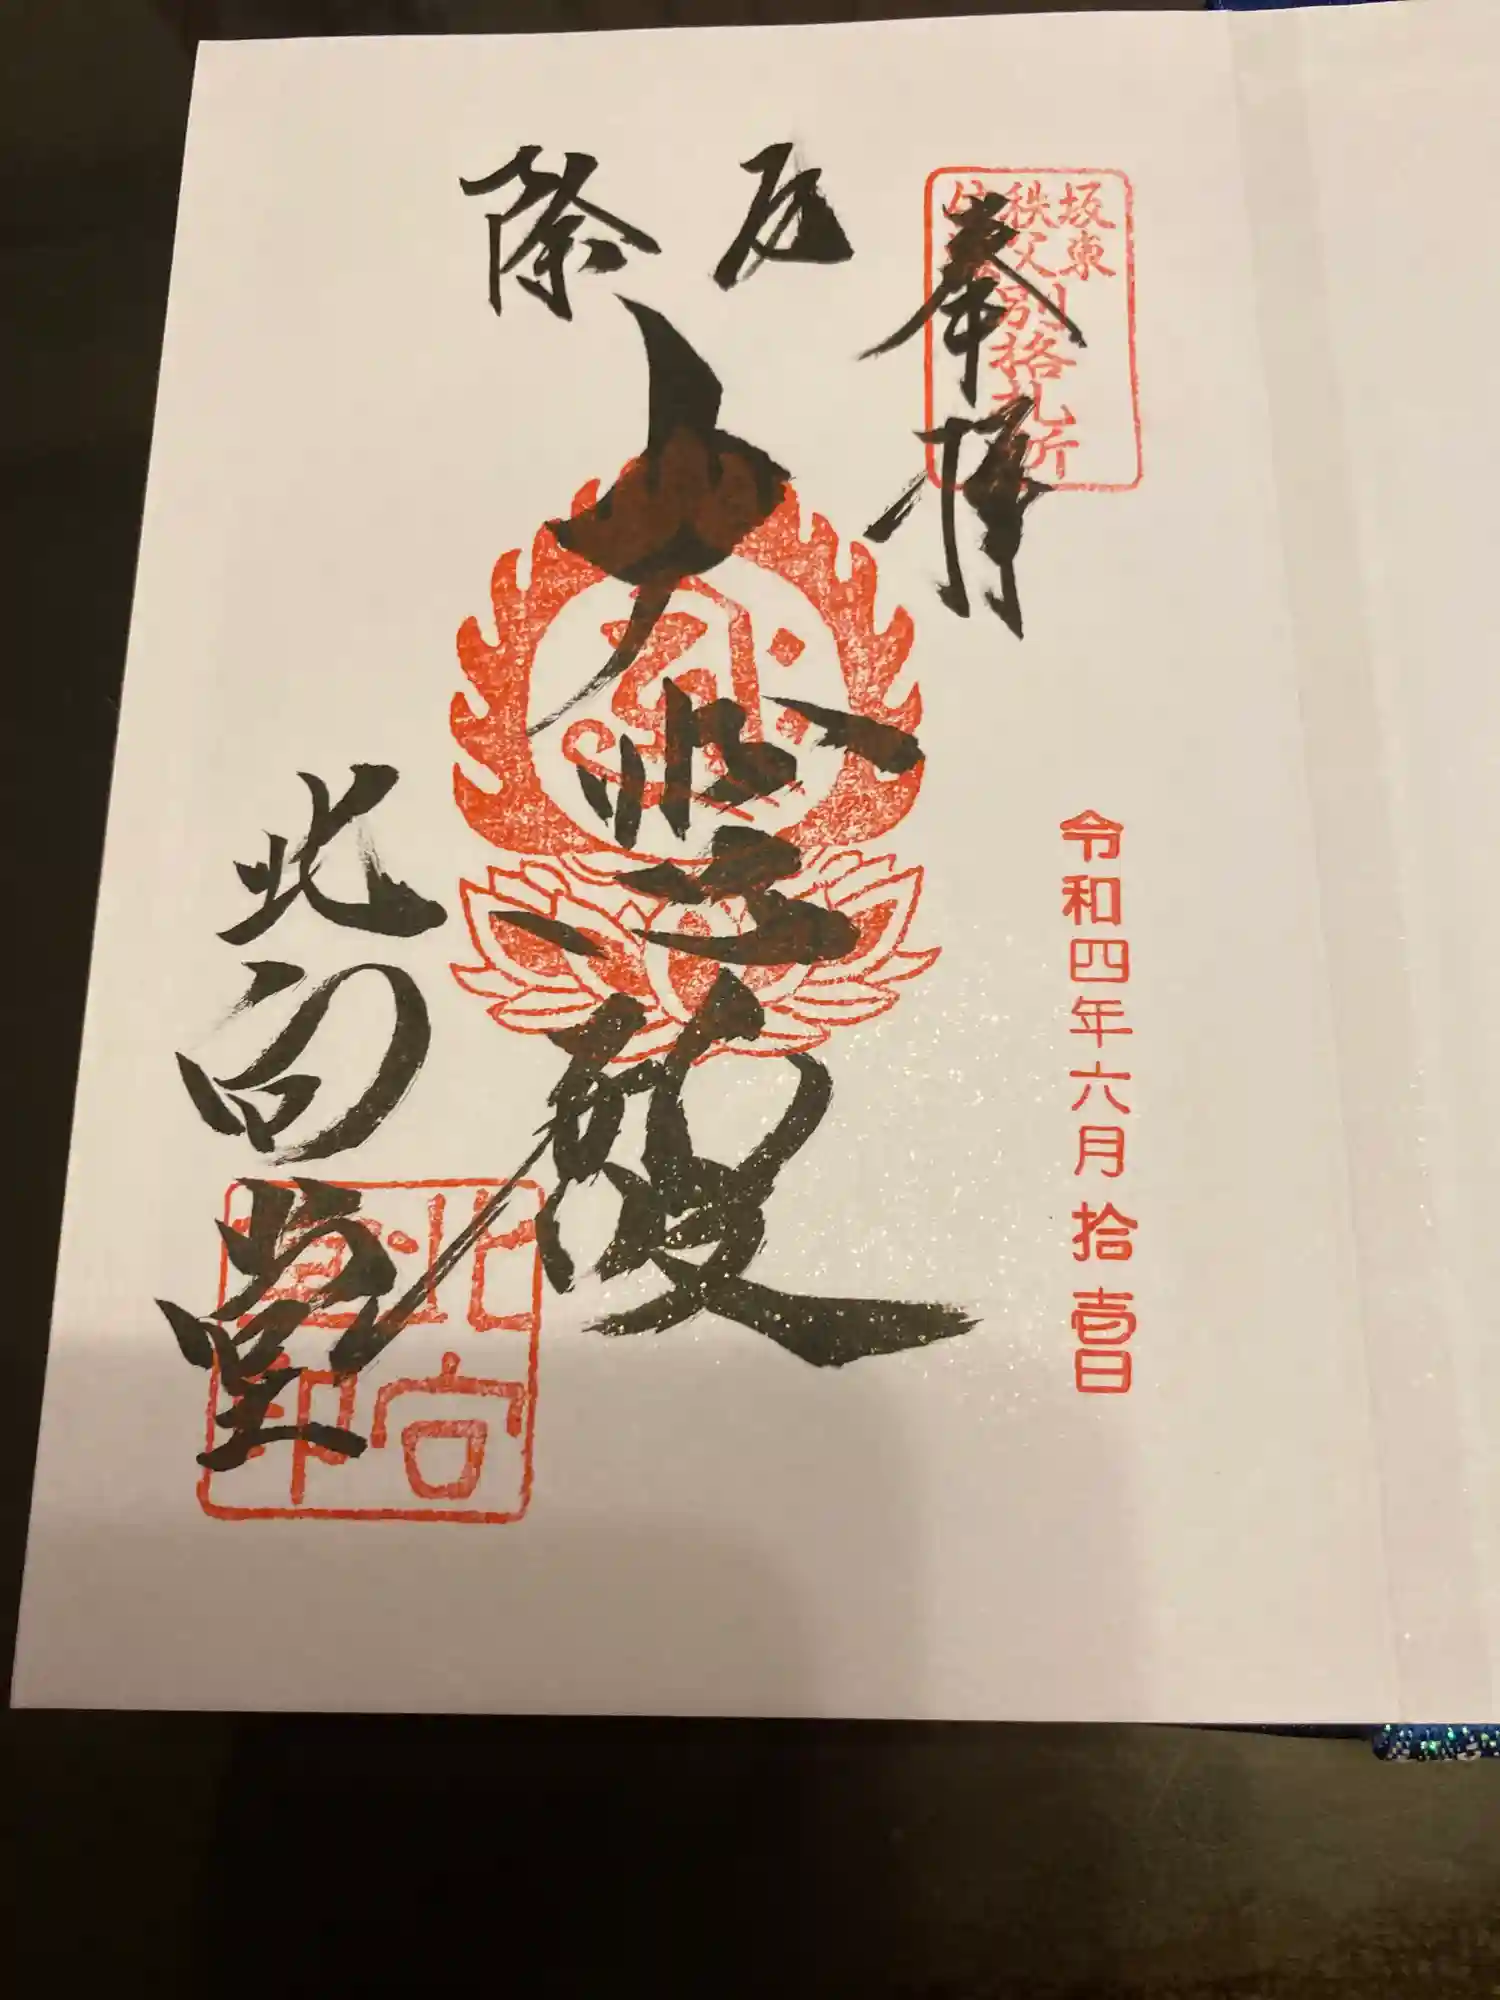 坂東
秩父
別格札所
奉拝
令和四年六月拾壱日
厄除
大悲殿
北向堂
北向堂印